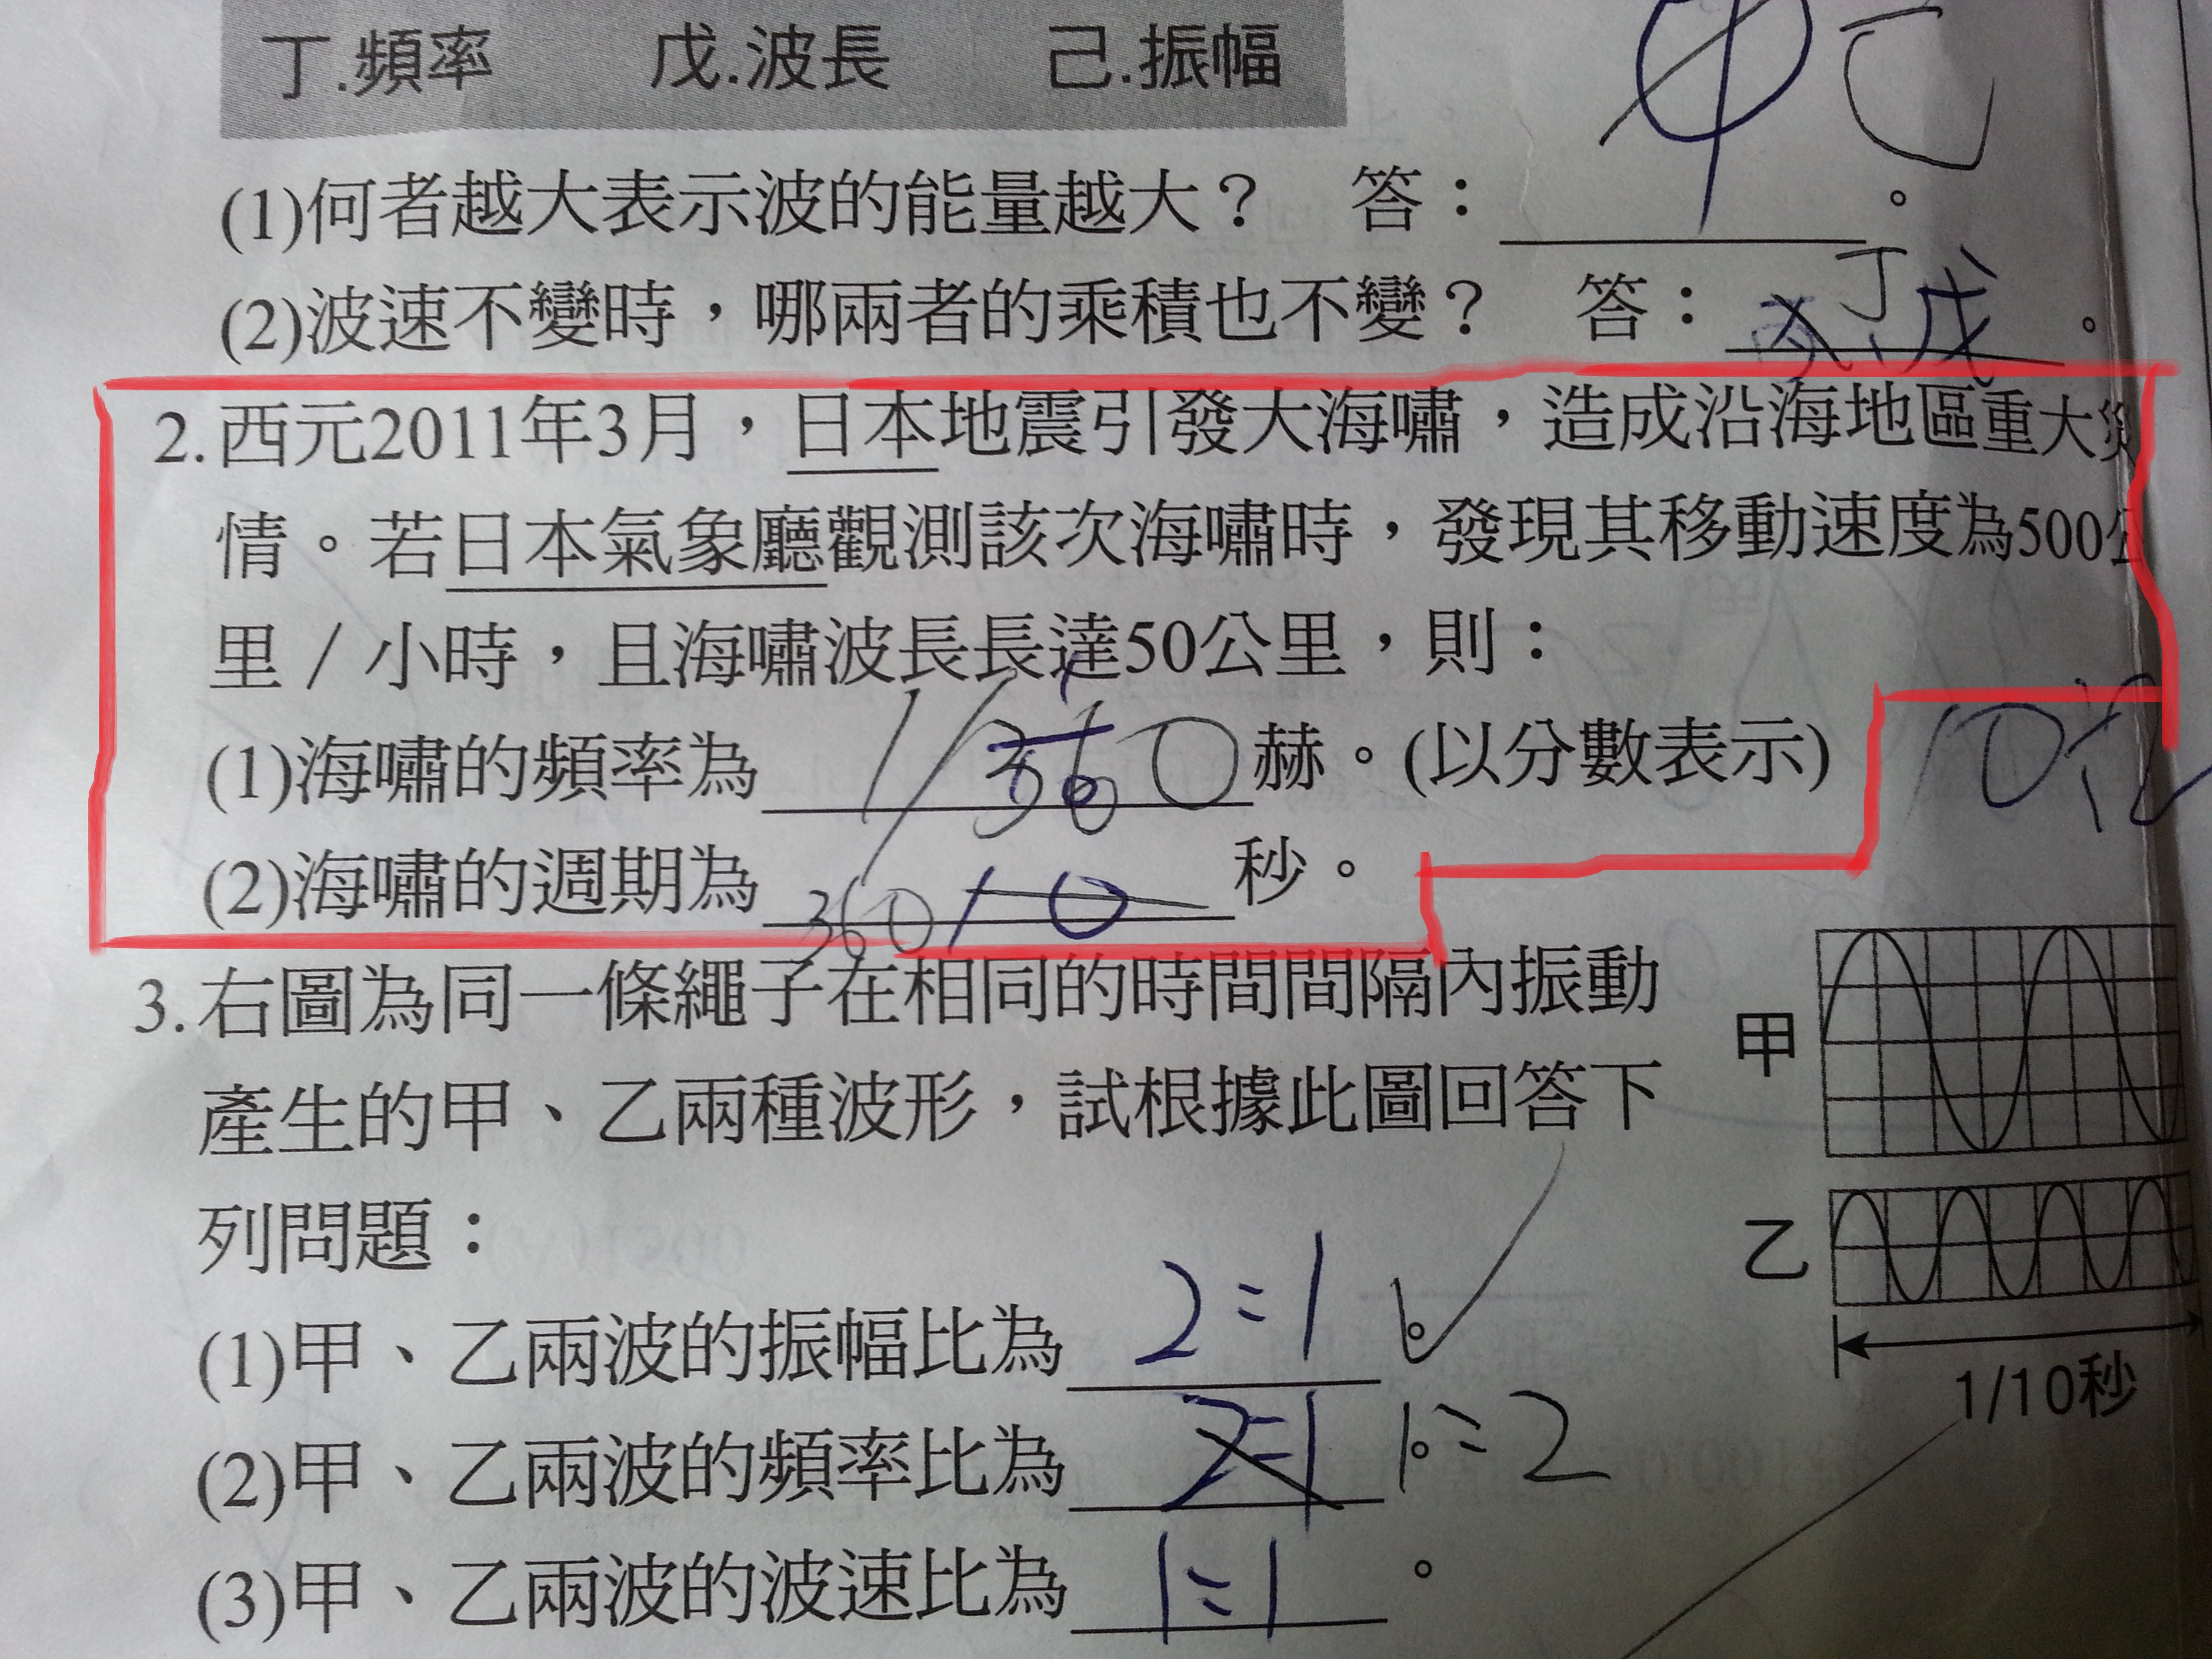 丁.頻率 戊.波長 己.振幅
己
(1)何者越大表示波的能量越大? 答:。
(2)波速不變時,哪兩者的乘積也不變? 答:丁、戊。
2.西元2011年3月,日本地震引發大海嘯,造成沿海地區重大災
情。若日本氣象廳觀測該次海嘯時,發現其移動速度為500公
里/小時,且海嘯波長長達50公里,則:
(1)海嘯的頻率為1/360赫。(以分數表示)
(2)海嘯的週期為360 10秒。
3.右圖為同一條繩子在相同的時間間隔內振動
產生的甲、乙兩種波形,試根據此圖回答下
列問題:
甲
乙
1/10秒
(1)甲、乙兩波的振幅比為2:1。
(2)甲、乙兩波的頻率比為2:1。1:2
(3)甲、乙兩波的波速比為1:1。